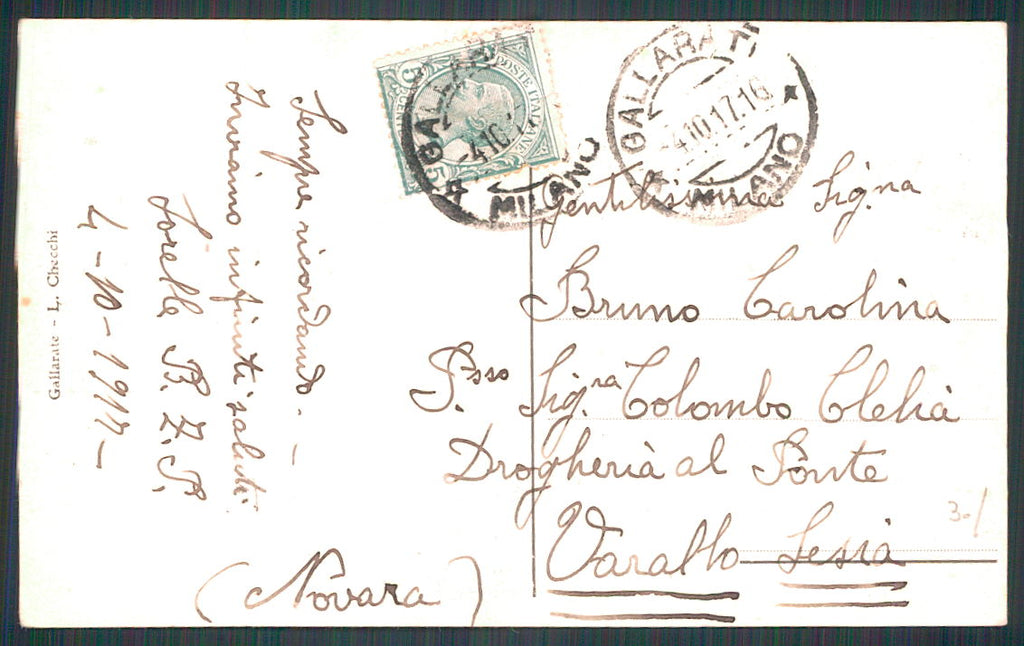 Gallarate - L. Checchi
Sempre ricordando. —
Inviamo infiniti saluti.
Sorelle B. Z. P.
4-10-1917-
POSTE ITALIANE
5 5
GALLARATE
4.10.
MILANO
GALLARATE
4.10.17.16
MILANO
Gentilissima Sig.na
Bruno Carolina
P.sso Sig.ra Colombo Clelia
Drogheria al Ponte
Varallo Sesia
(Novara)
30/